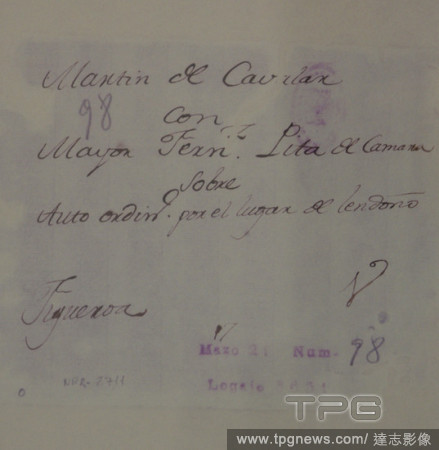 Martin de Cavrlan
98
con
Mayor Fern.z Pita de Camara
sobre
Auto ordin.o por el lugar de lendoño
Figueroa
V
Mazo 2 Num. 98
Legajo
TPG
www.tpgnews.com/ 達志影像